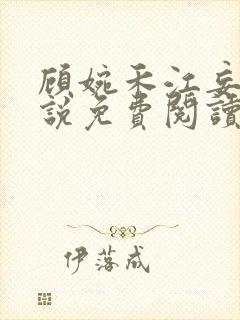 顾婉禾江妄
說免費閱讀
伊落成